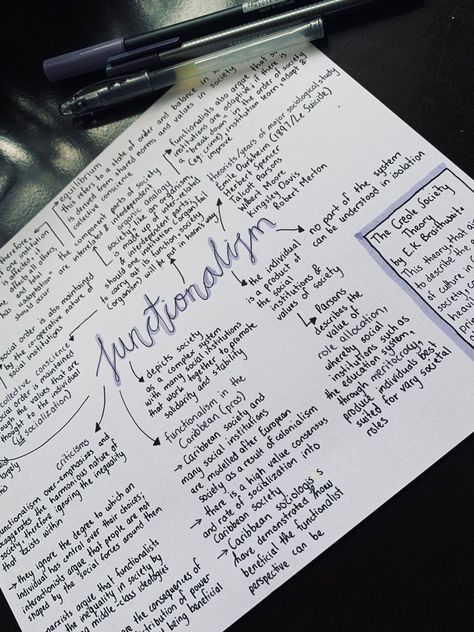 functionalism
equilibrium
this refers to a state of order and balance in
derived from shared norms and values in society
collective conscience
functionalists also argue that
institutions are adaptive; if there is
a "break down" in the order of society
(eg: crime), institution learn, adapt &
improve
theorists/years of major sociological study
Emile
Herbert Spencer
Talcott Parsons
Wilbert Moore
Kingsley Davis
Robert Merton
(1897/Le Suicide)
no part of the system
can be understood in isolation
the component parts of society
are interrelated & interdependent
organic analogy
society is like an organism,
made up of inter-related
& independent parts,
should an organ/social institution fail
to carry out its function, society
(organism) will be put in harms way
therefore
if one institution
is affected, all others
has
and
should
occur
social order is also maintained
by the co-operative nature of
social institutions
collective conscience
social order is maintained
through the values that are
thought to the individual
(socialization)
depicts society
as a complex system
with many social institutions
that work together to promote
solidarity and stability
the individual
is a product of
the social
institutions &
values of society
Parsons
describes the
value of
role allocation,
whereby social
institutions such as
the education system,
through meritocracy,
produce individuals best
suited for vary societal
roles
The Creole Society
Theory
by E.K Brathwaite
This theory,
to describe the
of culture
society
functionalism in the
Caribbean (pros)
→ Caribbean society and
many social institutions
are modelled after European
society as a result of colonialism
→ there is a high value consensus
and rate of socialization into
Caribbean society
→ Caribbean sociologists
have demonstrates how
beneficial the functionalist
perspective can be
criticisms
functionalism over-emphasizes and
exaggerates the harmonious nature of
society therefore ignoring the inequality
that exists within
→ they ignore the degree to which an
individual has control over their choices;
interactionists argue that people are not
shaped by the social forces around them
marxists argue that functionalists
the inequality in society by
middle-class ideologue
are the consequences of
distribution of power
not being beneficial